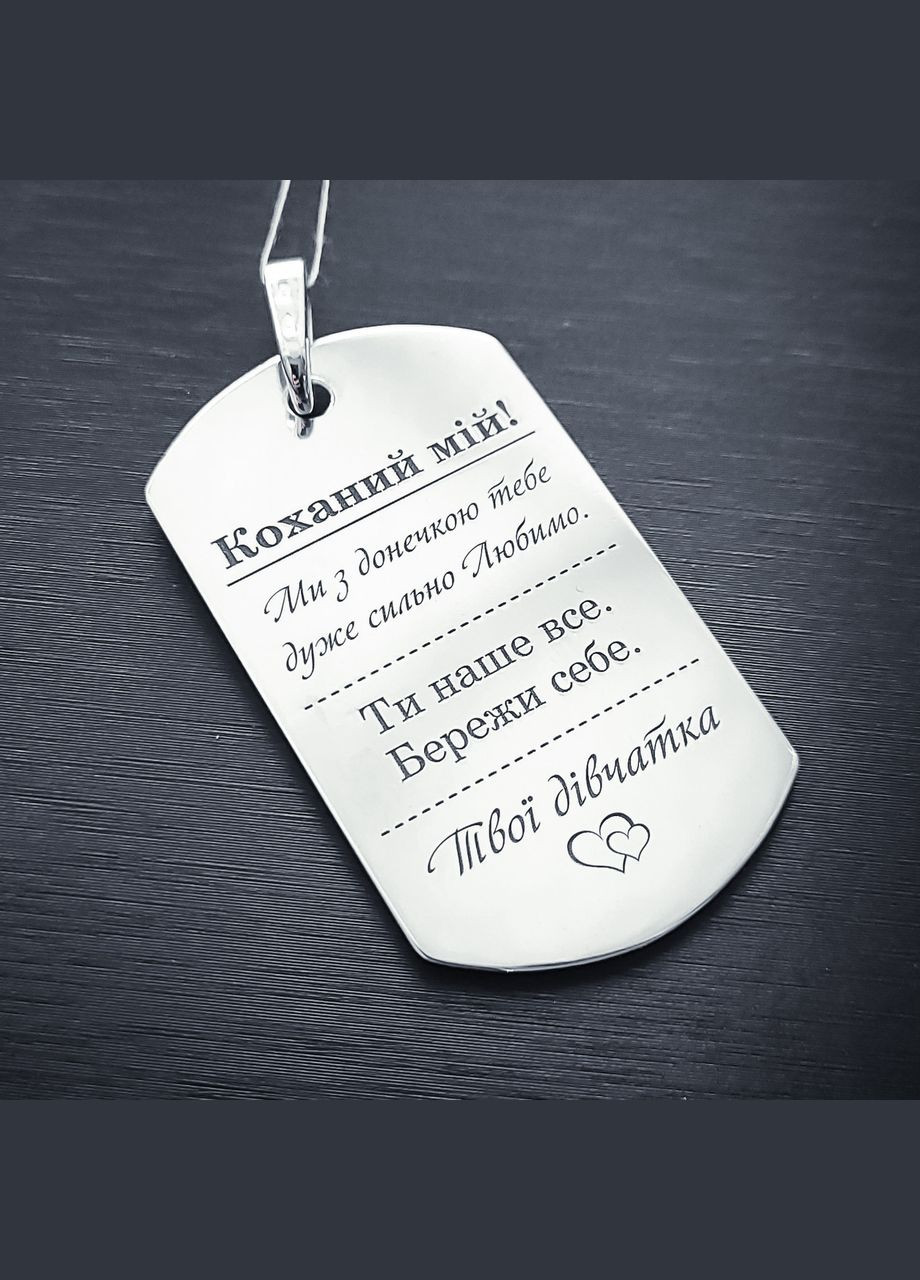 Коханий мій!
Ми з донечкою тебе
дуже сильно Любимо.
Ти наше все.
Бережи себе.
Твої дівчатка